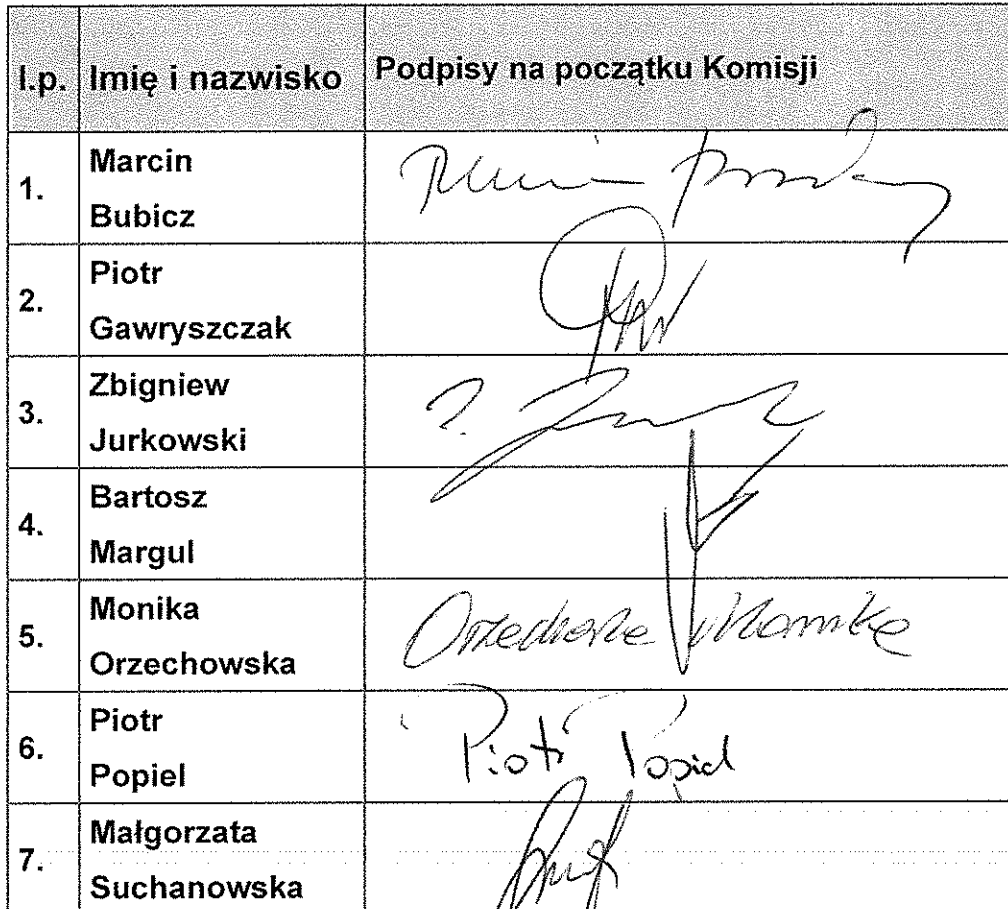 l.p. Imię i nazwisko Podpisy na początku Komisji
1. Marcin
Bubicz
2. Piotr
Gawryszczak
3. Zbigniew
Jurkowski
4. Bartosz
Margul
5. Monika
Orzechowska
6. Piotr
Popiel
Piotr Popiel
7. Małgorzata
Suchanowska